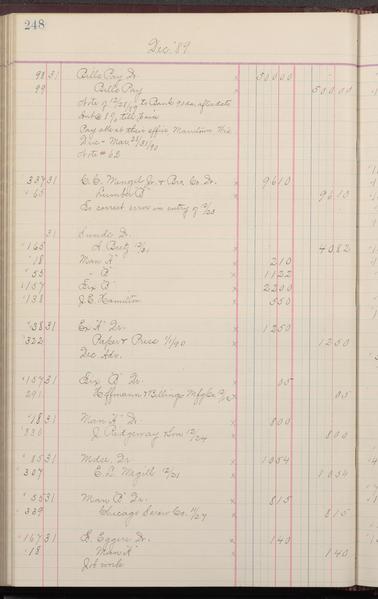 248
Dec. '89.
98 31 Bills Pay Dr. x 500 00
99 Bills Pay x 500 00
Note of 12/28/89 to Bank 90 ds. after date
Int @ 8% till paid
Pay able at their office Manitowoc Wis
Due - Mar. 31/90
Note # 62
337 31 C.C. Mengel Jr. & Bro Co. Dr. x 96 10
65 Lumber "B" x 96 10
To correct error in entry of 12/23
31 Sunds Dr.
165 A 12/31 x 40 82
18 Man "A" x 2 10
55 " "B" x 11 22
157 Exp "B" x 22 00
138 J.E. Hamilton x 5 50
38 31 Ex "A" Dr. x 12 50
322 Paper & Press 1/1/90 x 12 50
Dec. Adv.
157 31 Exp "B" Dr. x 05
291 Hoffmann & Billings Mfg Co x 05
18 31 Man "A" Dr. x 8 00
330 J. Ridgeway 12/24 x 8 00
85 31 Mdse. Dr. x 10 54
307 E.L. Megill 12/21 x 10 54
55 31 Man "B" Dr. x 8 15
339 Chicago Screw Co. 11/27 x 8 15
167 31 S. Eggers Dr. x 1 40
18 Man "A" x 1 40
Job work